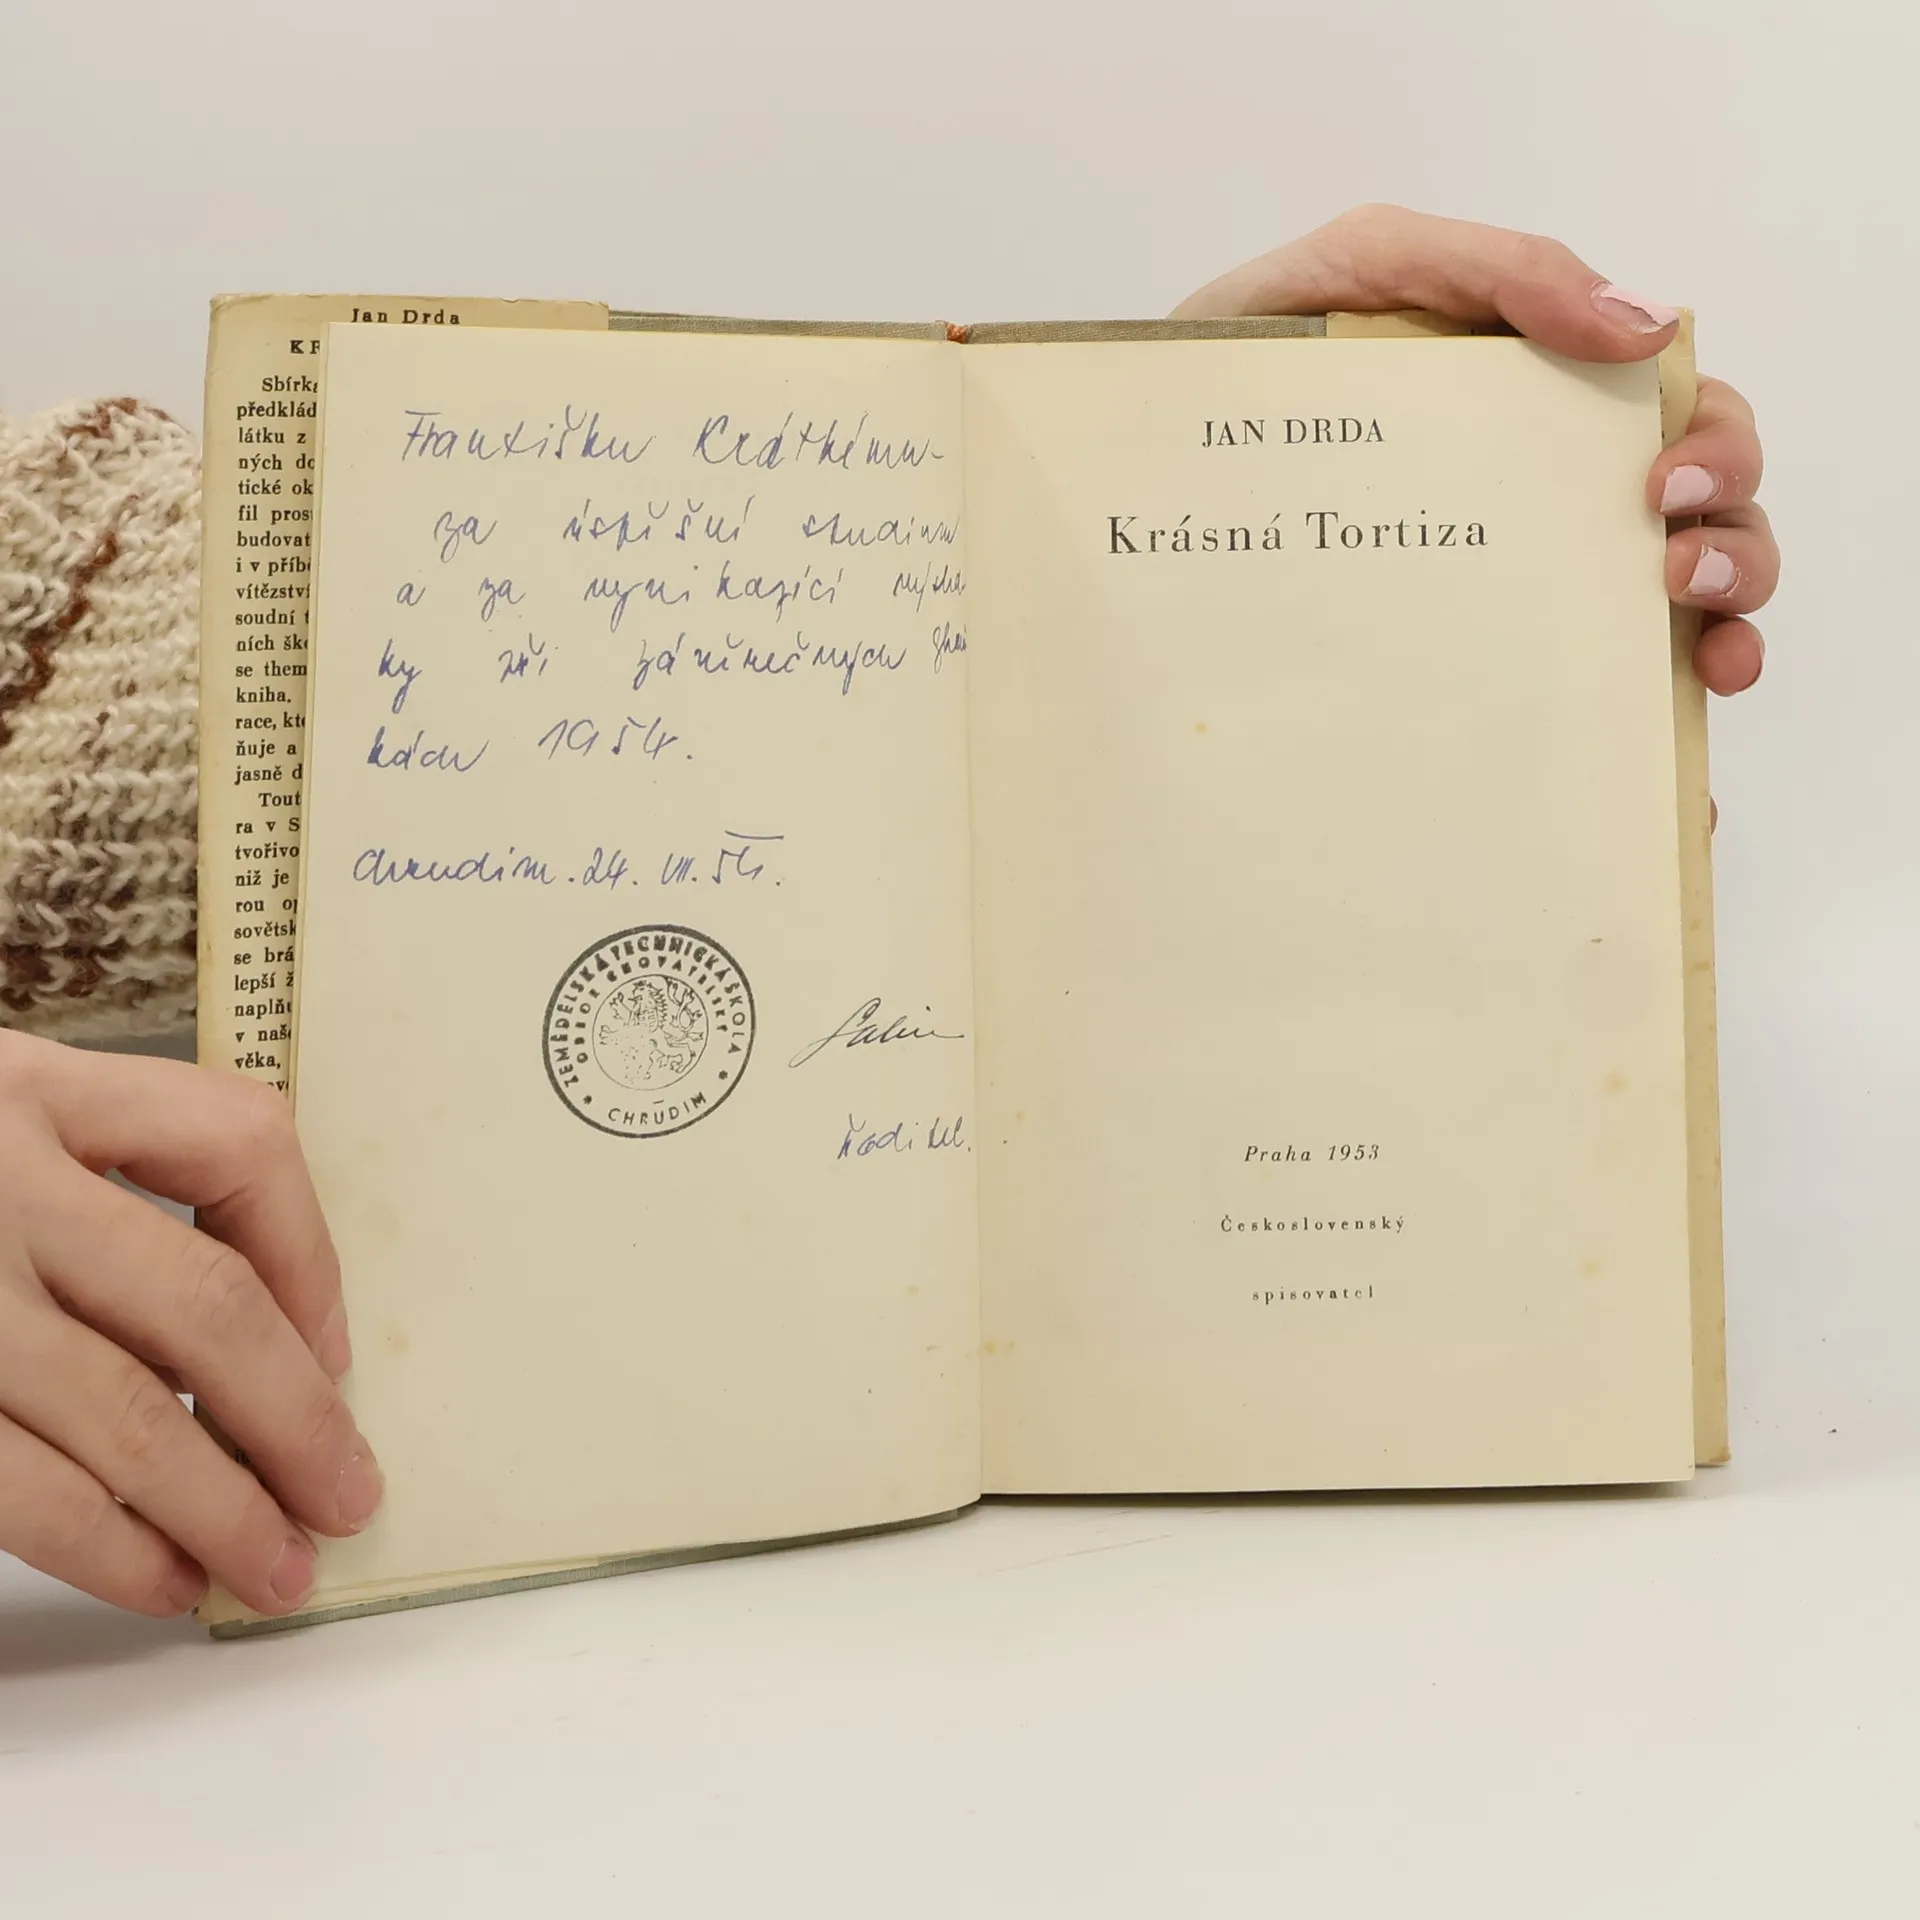 Jan Drda
KR
Sbírka
předklád
látku z
ných do
tické ok
fil pros
budovat
i v příbě
vítězství
soudní t
ních ško
se them
kniha.
race, kte
ňuje a
jasně d
Tout
ra v S
tvořivo
niž je
rou op
sovětsk
se brá
lepší ž
naplňu
v naše
věka,
Františku Krátkému
za úspěšné studium
a za vynikající výsled
ky při závěrečných zkouš
kách 1954.
Chrudim. 24. VII. 54.
ZEMĚDĚLSKÁ TECHNICKÁ ŠKOLA
ODBOR CHOVATELSKÝ
* CHRUDIM *
ředitel.
JAN DRDA
Krásná Tortiza
Praha 1953
Československý
spisovatel